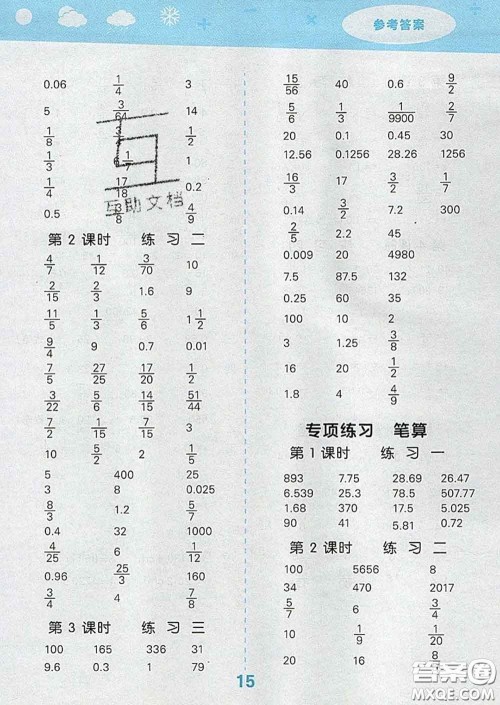 参考答案
0.06 1/4 3
5 3/64 14
1/8 1/2
1/3 1
17/18 0.2
0.5 3/8 4/9
互助文档
第2课时 练习二
4/7 1/12 3/70 10
2/15 2/3 1.6 9
11/5 1/3 5/6 1 1/2
9/4 9 0.7 0.01
7/5 27/25 17/20 1/2
3/22 5/5 15/14 51/44
7/2 1/15 1/3 2/15
10 2/3 2 1/5
5 400 25
3 8 0.025
8/3 1.2 5/7
0.4 32 1000
4/25 6 1/15
0.96 25/3 160
3/4 4 7/8
第3课时 练习三
100 165 336 31
9.6 0.3 1 79
15/56 40 0.6 9/2
5 1/3 1/9900 2/7
20 0.1 0.45 30
12.56 0.1256 28.26 1256
16/3 17 1/2 3/2
0.14 3/2 7/6 9/4
2/5 2.2 0.45
0.009 20 4980
7.5 87.5 132
0.25 35 60
100 10 2
3 1.25 3/8
36 20 1/2
1.8 4 4/9
专项练习 笔算
第1课时 练习一
893 7.75 28.69 26.47
6.539 25.3 78.5 507.77
1.68 370 17.5 5.025
90 41 5.81 0.72
第2课时 练习二
100 5656 8
34 470 2017
5/7 6 3/4
10 1/9 1/20
20 16
15
答案圈
MXQE.COM